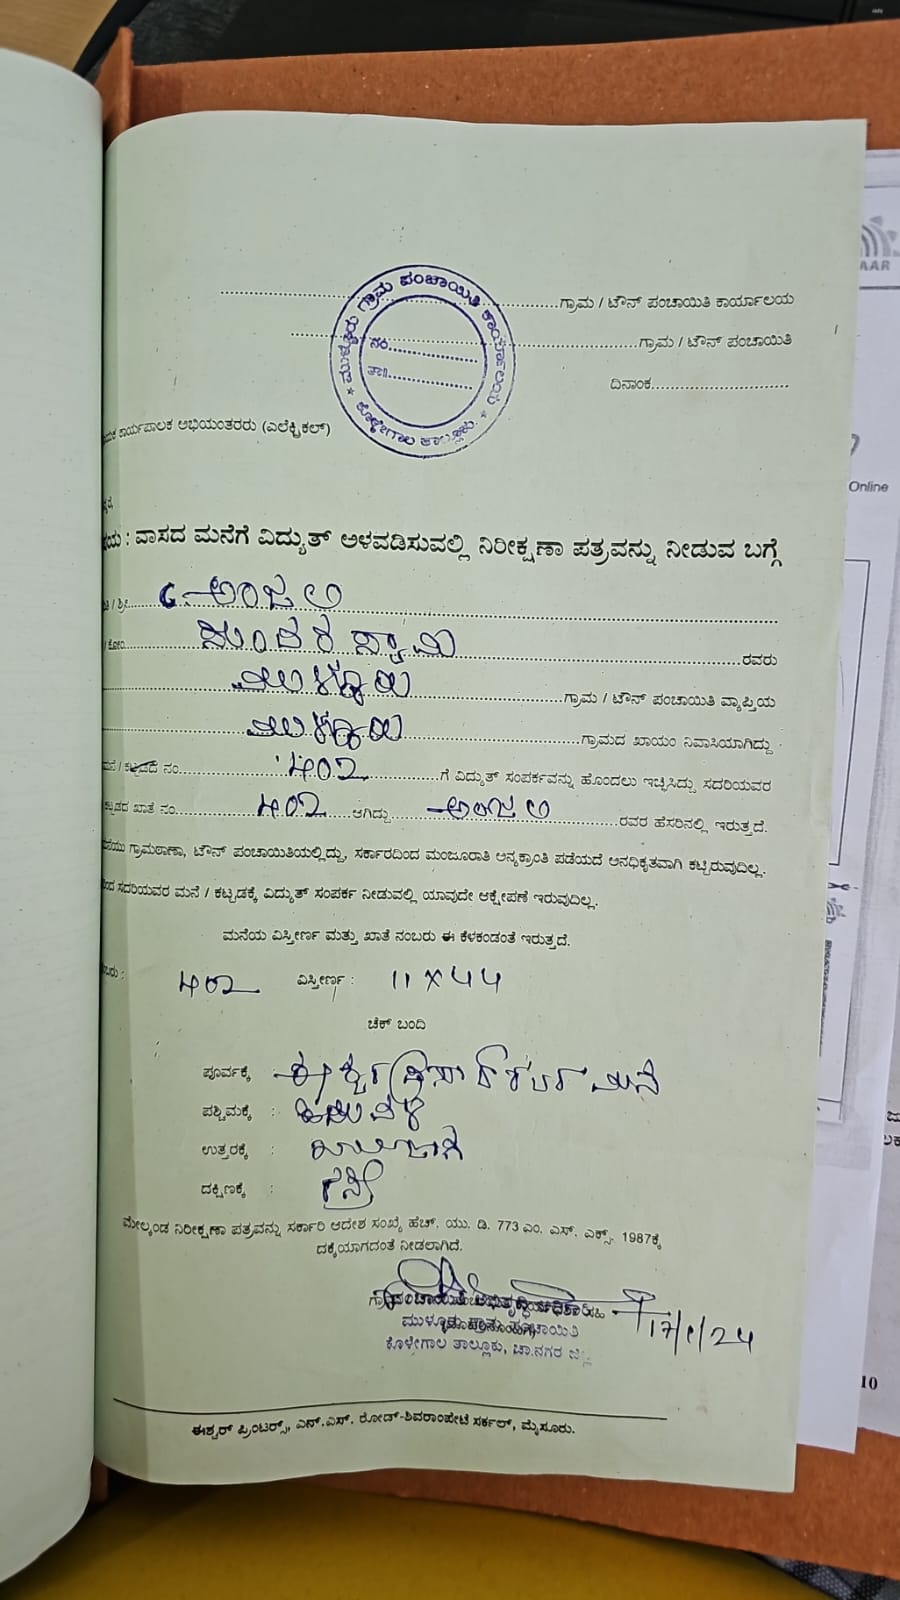 ...ಗ್ರಾಮ / ಟೌನ್ ಪಂಚಾಯಿತಿ ಕಾರ್ಯಾಲಯ
...ಗ್ರಾಮ / ಟೌನ್ ಪಂಚಾಯಿತಿ
ದಿನಾಂಕ...
ಗ್ರಾಮ ಪಂಚಾಯಿತಿ ಕಾರ್ಯಾಲಯ
ನಂ...
ತಾ॥...
ಕೊಳ್ಳೇಗಾಲ ತಾಲ್ಲೂಕು.
ಕಾರ್ಯಪಾಲಕ ಅಭಿಯಂತರರು (ಎಲೆಕ್ಟ್ರಿಕಲ್)
: ವಾಸದ ಮನೆಗೆ ವಿದ್ಯುತ್ ಅಳವಡಿಸುವಲ್ಲಿ ನಿರೀಕ್ಷಣಾ ಪತ್ರವನ್ನು ನೀಡುವ ಬಗ್ಗೆ
/ ಶ್ರೀ... ಅಂಜಲಿ
ಸುಂದರಸ್ವಾಮಿ ರವರು
ಗ್ರಾಮ / ಟೌನ್ ಪಂಚಾಯಿತಿ ವ್ಯಾಪ್ತಿಯ
ಗ್ರಾಮದ ಖಾಯಂ ನಿವಾಸಿಯಾಗಿದ್ದು
ಮನೆ / ಕಟ್ಟಡದ ನಂ... ೫೦೨ ಗೆ ವಿದ್ಯುತ್ ಸಂಪರ್ಕವನ್ನು ಹೊಂದಲು ಇಚ್ಛಿಸಿದ್ದು ಸದರಿಯವರ
ಕಟ್ಟಡದ ಖಾತೆ ನಂ... ೫೦೨ ಆಗಿದ್ದು ಅಂಜಲಿ ರವರ ಹೆಸರಿನಲ್ಲಿ ಇರುತ್ತದೆ.
ಗ್ರಾಮಠಾಣಾ, ಟೌನ್ ಪಂಚಾಯಿತಿಯಲ್ಲಿದ್ದು, ಸರ್ಕಾರದಿಂದ ಮಂಜೂರಾತಿ ಅನ್ಯಕ್ರಾಂತಿ ಪಡೆಯದೆ ಅನಧಿಕೃತವಾಗಿ ಕಟ್ಟಿರುವುದಿಲ್ಲ.
ಸದರಿಯವರ ಮನೆ / ಕಟ್ಟಡಕ್ಕೆ ವಿದ್ಯುತ್ ಸಂಪರ್ಕ ನೀಡುವಲ್ಲಿ ಯಾವುದೇ ಆಕ್ಷೇಪಣೆ ಇರುವುದಿಲ್ಲ.
ಮನೆಯ ವಿಸ್ತೀರ್ಣ ಮತ್ತು ಖಾತೆ ನಂಬರು ಈ ಕೆಳಕಂಡಂತೆ ಇರುತ್ತದೆ.
೫೦೨ ವಿಸ್ತೀರ್ಣ : 11 X 44
ಚೆಕ್ ಬಂದಿ
ಪೂರ್ವಕ್ಕೆ ಮನೆ
ಪಶ್ಚಿಮಕ್ಕೆ :
ಉತ್ತರಕ್ಕೆ :
ದಕ್ಷಿಣಕ್ಕೆ : ರಸ್ತೆ
ಮೇಲ್ಕಂಡ ನಿರೀಕ್ಷಣಾ ಪತ್ರವನ್ನು ಸರ್ಕಾರಿ ಆದೇಶ ಸಂಖ್ಯೆ ಹೆಚ್. ಯು. ಡಿ. 773 ಎಂ. ಎಸ್. ಎಕ್ಸ್. 1987ಕ್ಕೆ
ದಕ್ಕೆಯಾಗದಂತೆ ನೀಡಲಾಗಿದೆ.
17/1/24
ಕೊಳ್ಳೇಗಾಲ ತಾಲ್ಲೂಕು, ಚಾ.ನಗರ ಜಿಲ್ಲೆ
ಈಶ್ವರ್ ಪ್ರಿಂಟರ್ಸ್, ಎನ್.ಎಸ್. ರೋಡ್-ಶಿವರಾಂಪೇಟೆ ಸರ್ಕಲ್, ಮೈಸೂರು.
AAR
Online
10